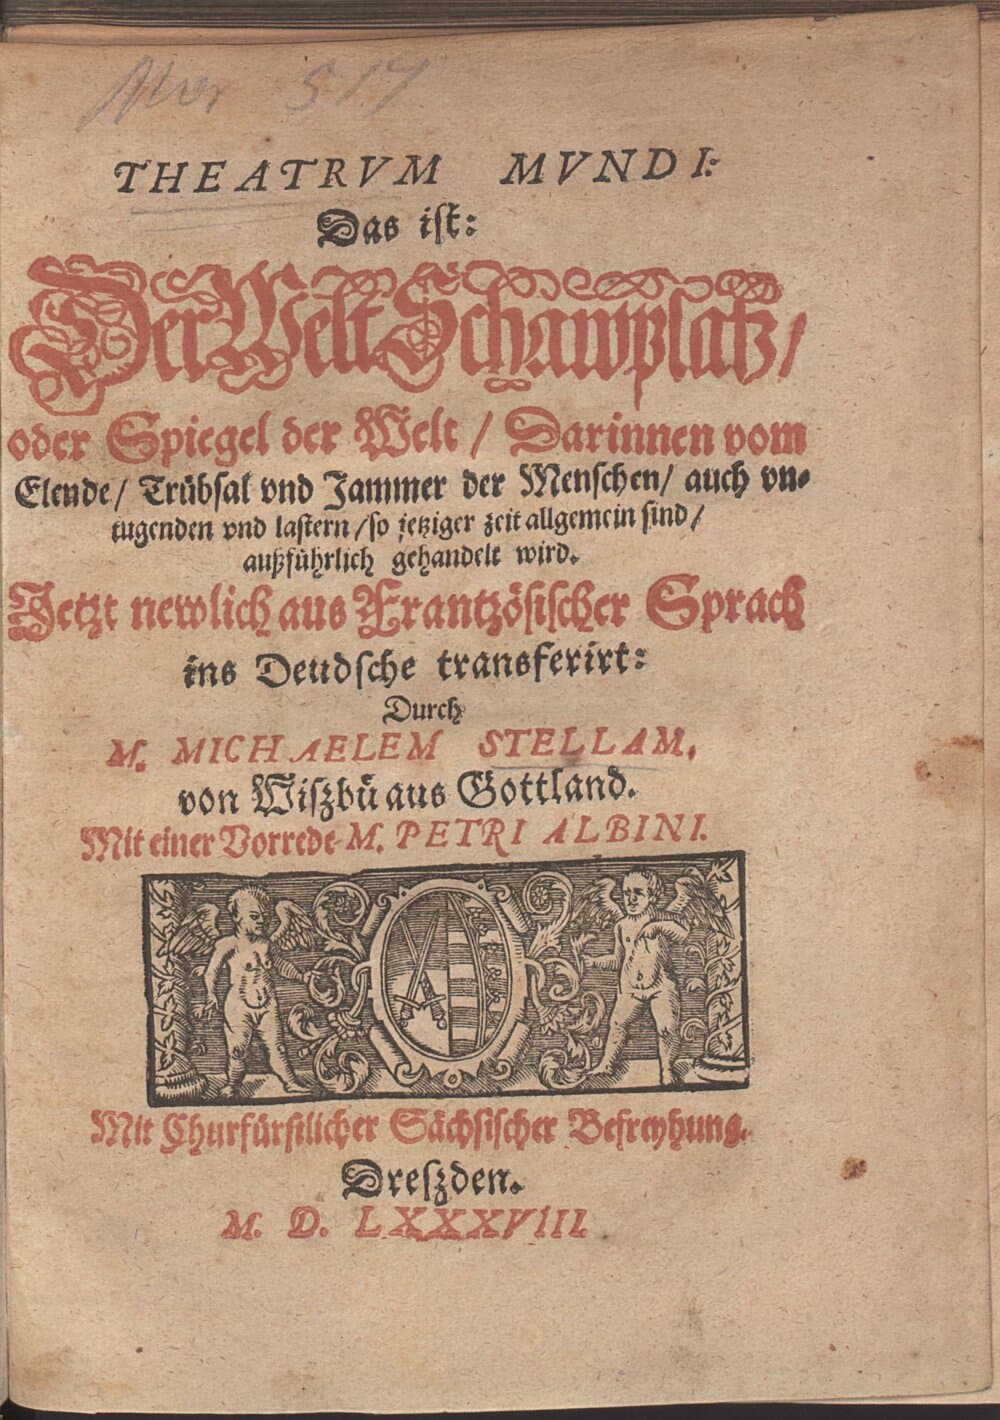 517
THEATRVM MVNDI:
Das ist:
Der Welt Schawplatz/
oder Spiegel der Welt / Darinnen vom
Elende/ Trübsal vnd Jammer der Menschen/ auch vn-
tugenden vnd lastern/so jetziger zeit allgemein sind/
außführlich gehandelt wird.
Jetzt newlich aus Frantzösischer Sprach
ins Deudsche transferirt:
Durch
M. MICHAELEM STELLAM,
von Wiszbü aus Gottland.
Mit einer Vorrede M. PETRI ALBINI.
Mit Churfürstlicher Sächsischer Befreyhung.
Dreszden.
M. D. LXXXVIII.